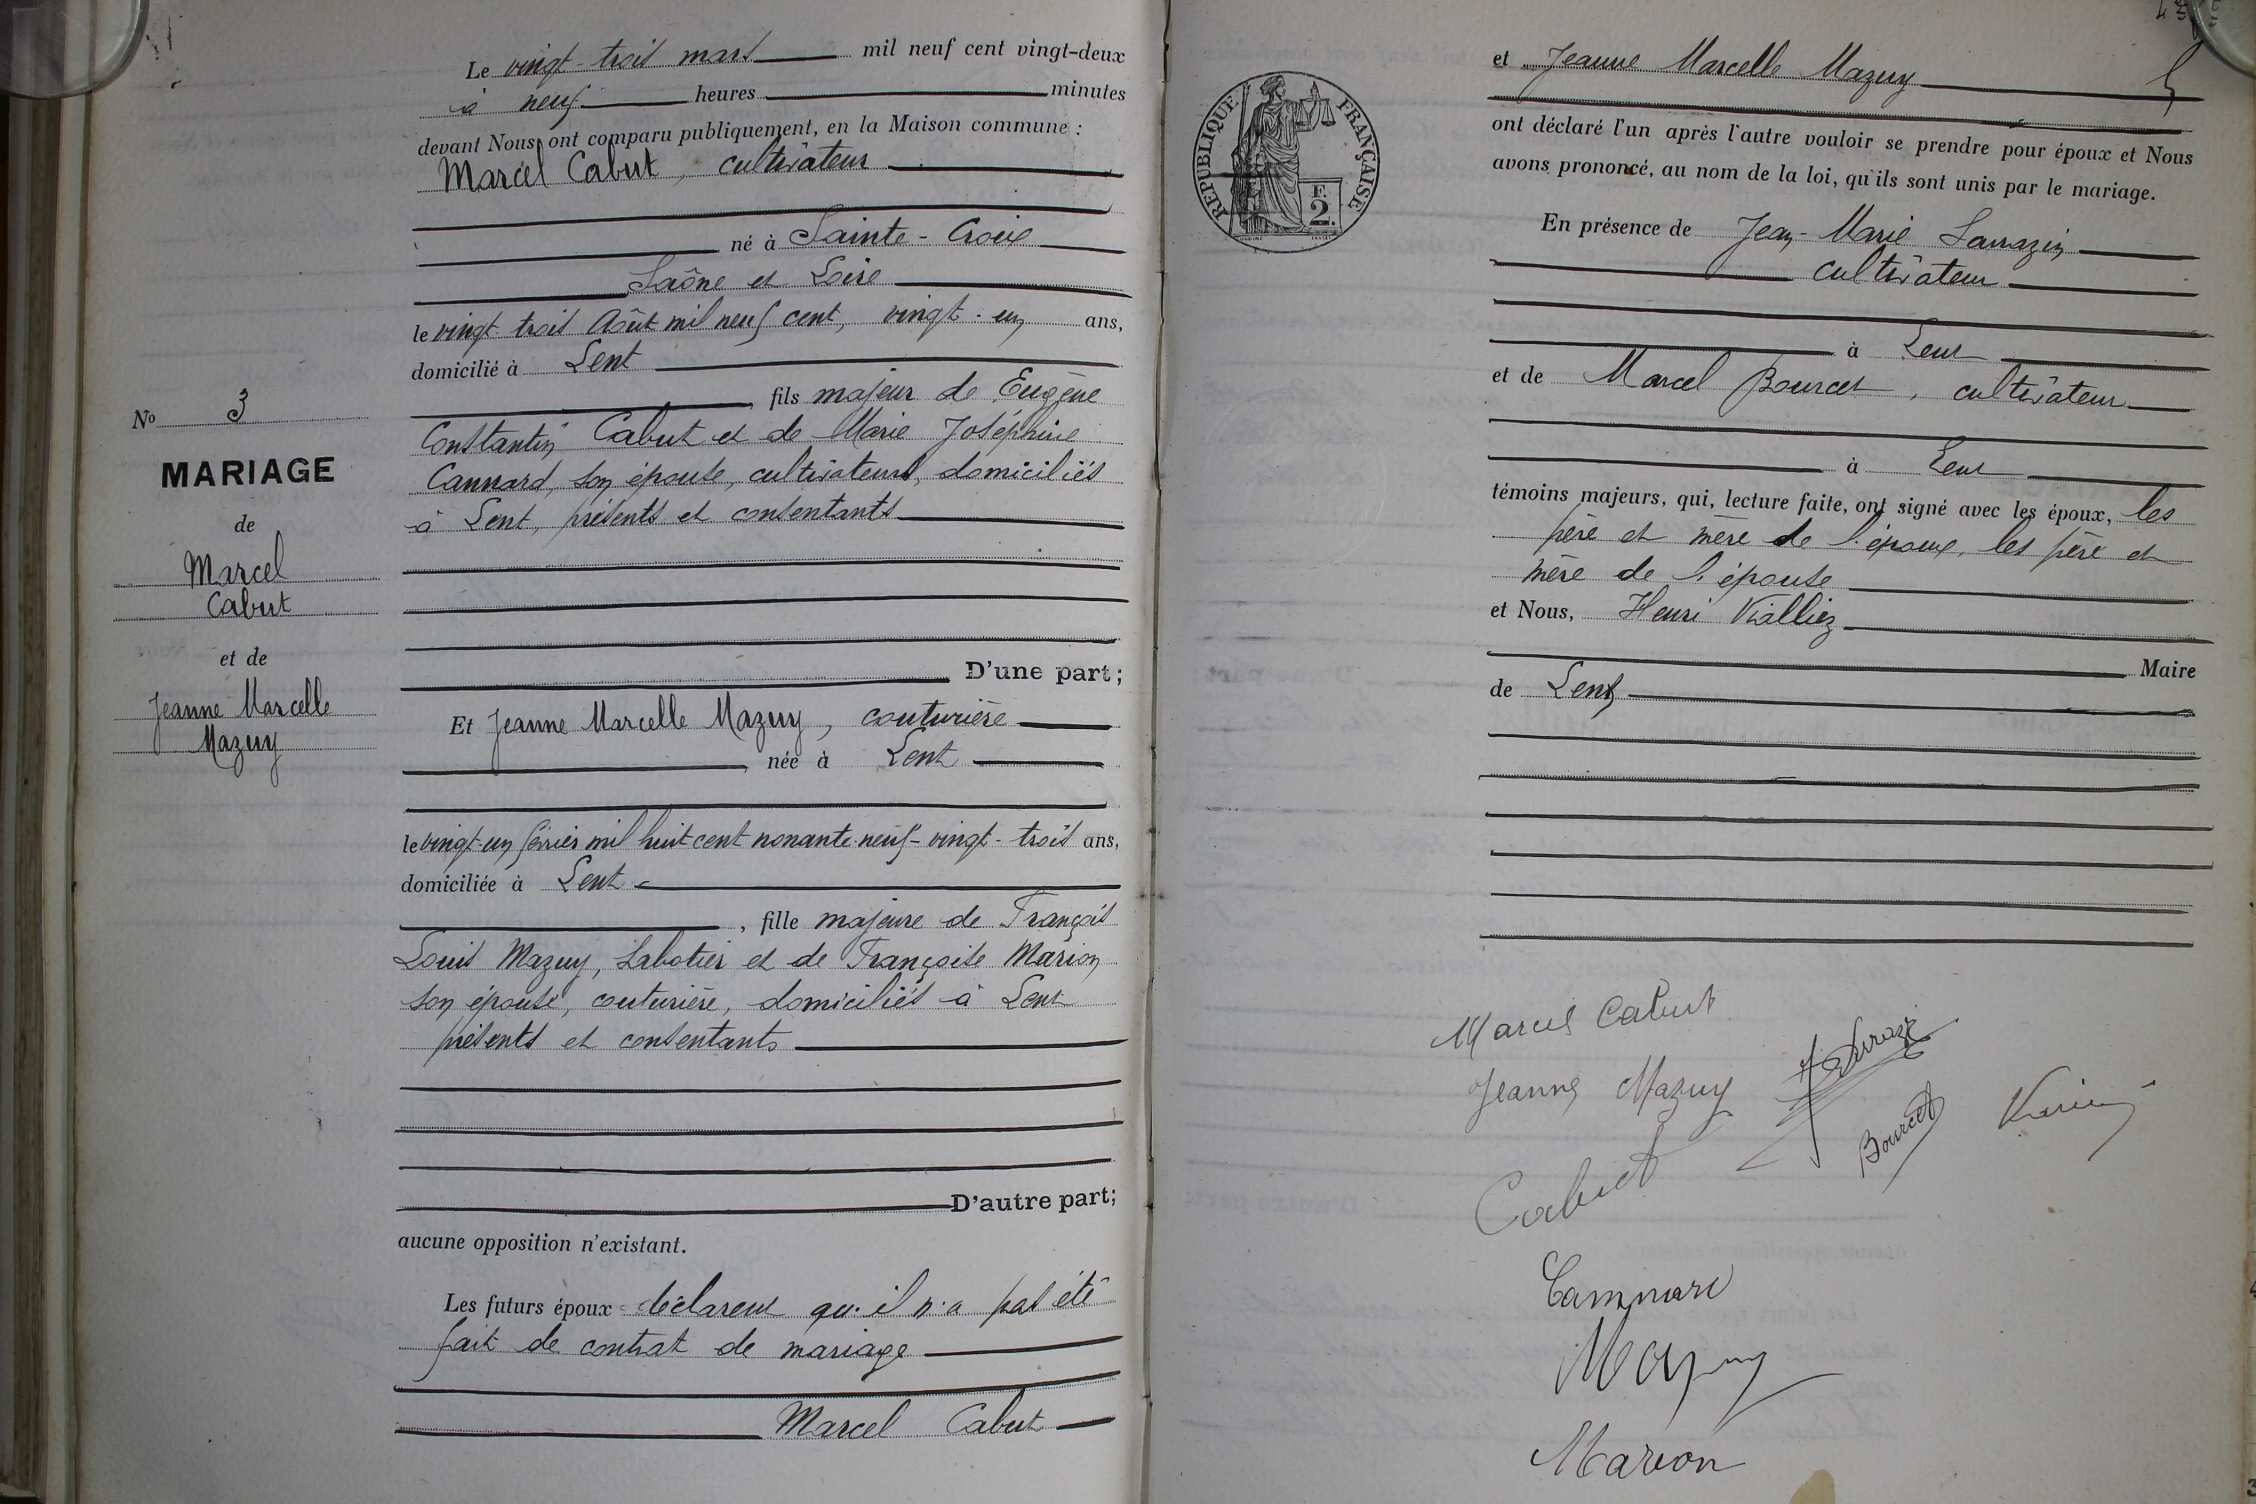 Le vingt-trois mars mil neuf cent vingt-deux
à neuf heures minutes
devant Nous ont comparu publiquement, en la Maison commune :
Marcel Cabut, cultivateur
né à Sainte-Croix
Saône et Loire
le vingt-trois Août mil neuf cent, vingt-un ans,
domicilié à Lent
fils majeur de Eugène
Constantin Cabut et de Marie Joséphine
Cannard, son épouse, cultivateurs, domiciliés
à Lent, présents et consentants
D'une part;
No 3
MARIAGE
de
Marcel
Cabut
et de
Jeanne Marcelle
Mazuy
Et Jeanne Marcelle Mazuy, couturière
née à Lent
le vingt-un février mil huit cent nonante-neuf - vingt-trois ans,
domiciliée à Lent
, fille majeure de François
Louis Mazuy, sabotier et de Françoise Marion
son épouse, couturière, domiciliés à Lent
présents et consentants
D'autre part;
aucune opposition n'existant.
Les futurs époux déclarent qu'il n'a pas été
fait de contrat de mariage
Marcel Cabut
et Jeanne Marcelle Mazuy
ont déclaré l'un après l'autre vouloir se prendre pour époux et Nous
avons prononcé, au nom de la loi, qu'ils sont unis par le mariage.
RÉPUBLIQUE FRANÇAISE
F.
2.
En présence de Jean-Marie Sarrazin
cultivateur
à Lent
et de Marcel Bourcet, cultivateur
à Lent
témoins majeurs, qui, lecture faite, ont signé avec les époux, les
père et mère de l'époux, les père et
mère de l'épouse
et Nous, Henri
Maire
de Lent
Marcel Cabut
Jeanne Mazuy
Sarrazin
Bourcet
Cabut
Cannard
Mazuy
Marion